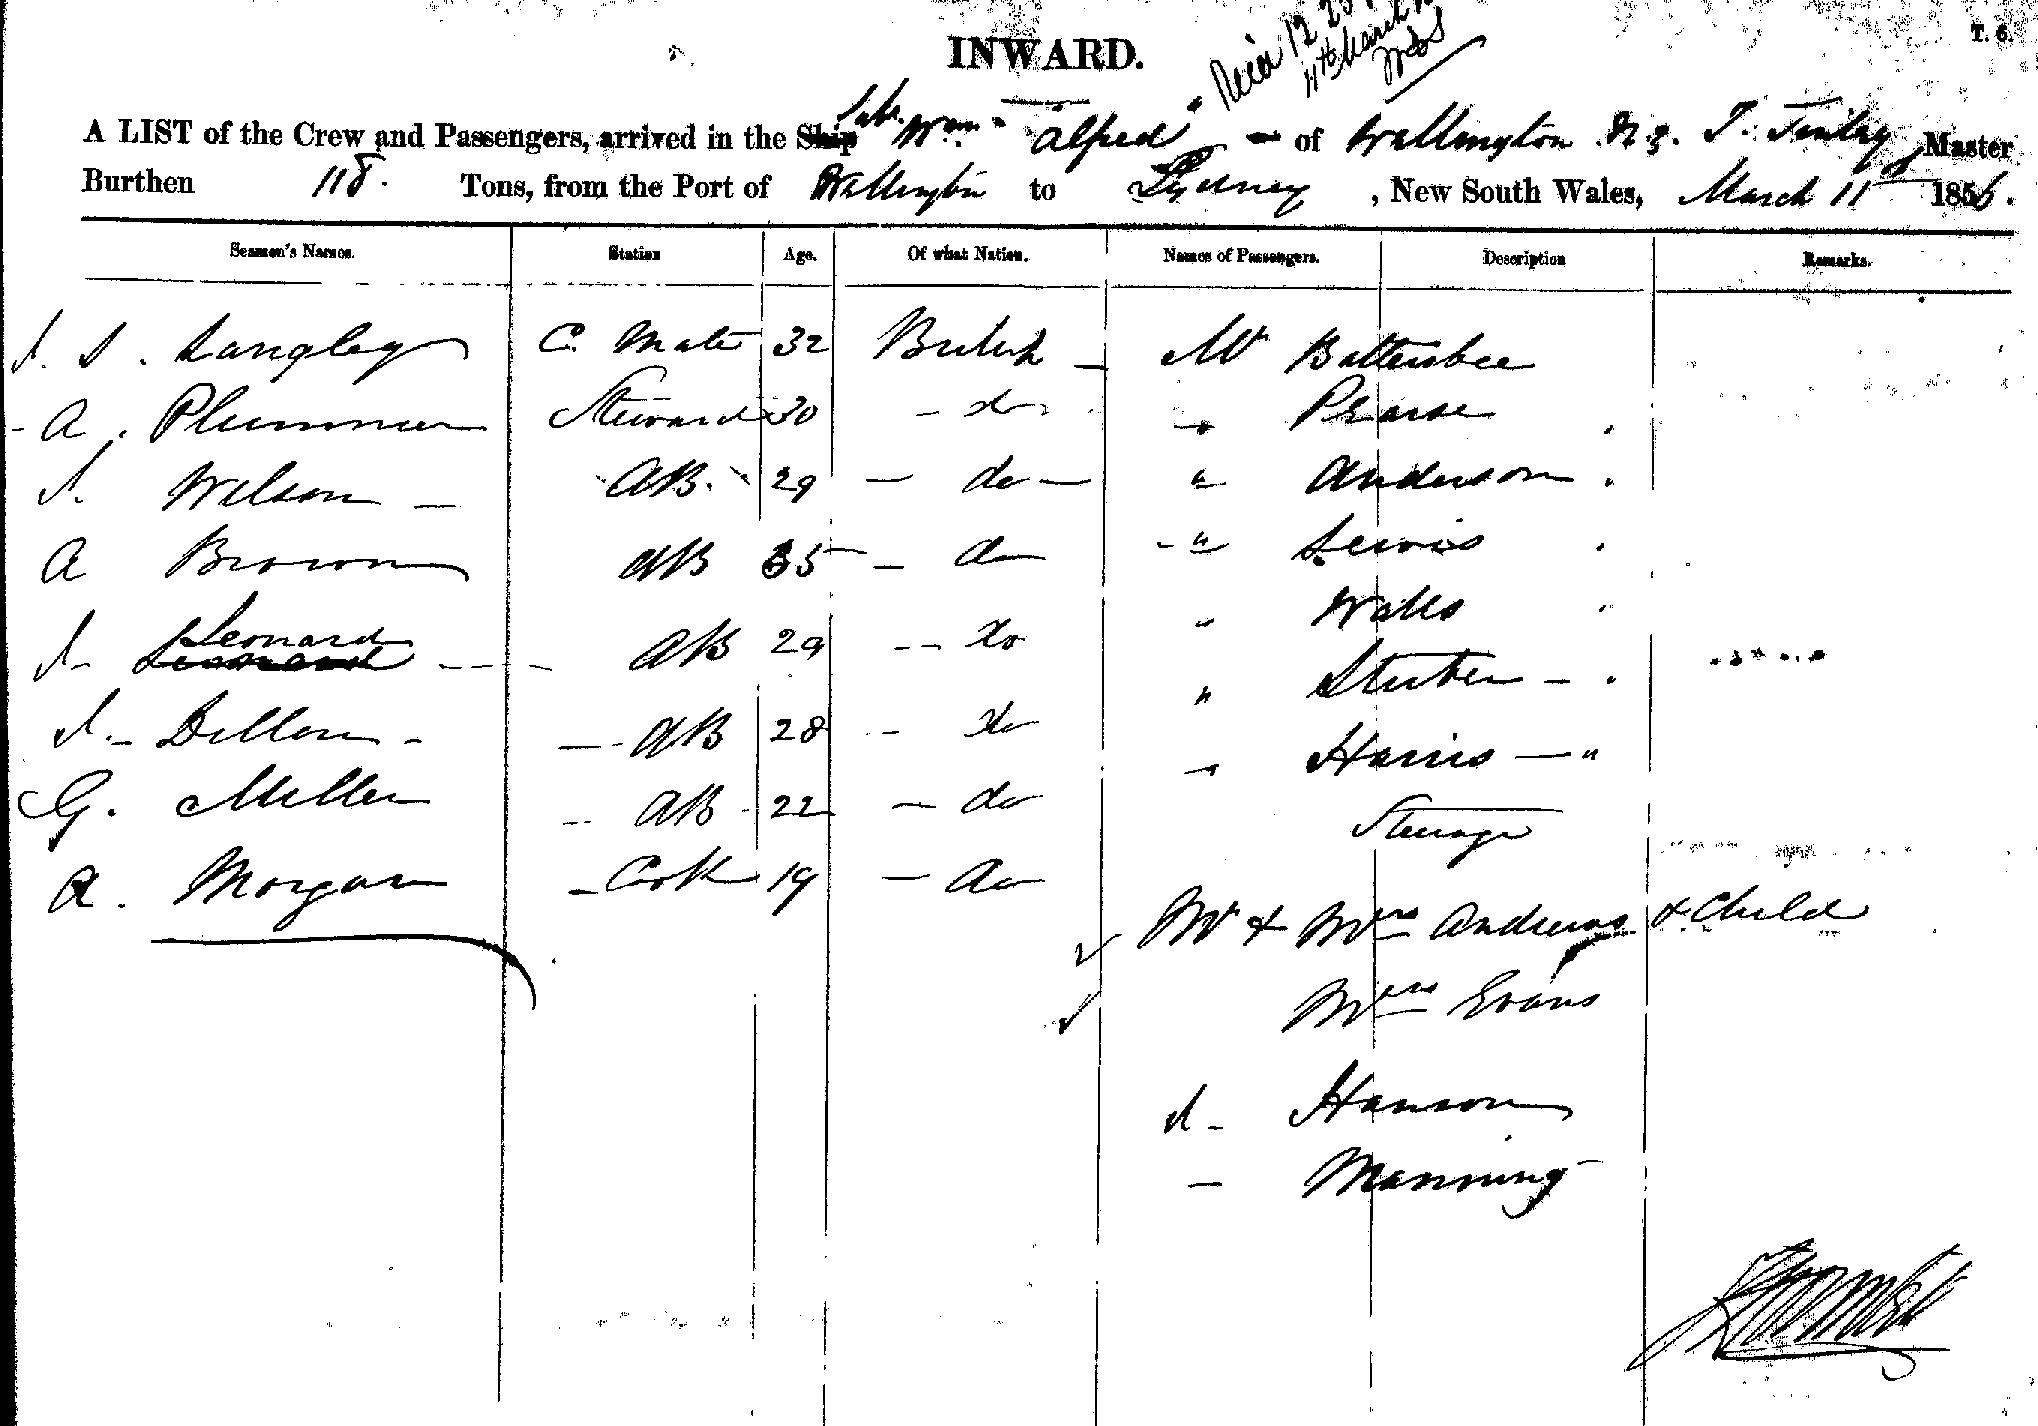 INWARD.
T. 6.
11th March
A LIST of the Crew and Passengers, arrived in the Ship Wm. "Alfred" of Wellington N.Z. T. Finlay, Master
Burthen 118. Tons, from the Port of Wellington to Sydney, New South Wales, March 11 1856.
Seamen's Names. Station Age. Of what Nation. Names of Passengers. Description Remarks.
J. S. Langley C. Mate 32 British Mr Battersbee
A. Plummer Steward 30 do " Pearse
J. Wilson AB. 29 do " Anderson
A Brown AB 35 do " Lewis
J. Leonard AB 29 do " Watts
J. Dillon AB 28 do " Stuber
G. Miller AB 22 do " Harris "
Steerage
A. Morgan Cook 19 do
Mr & Mrs Andrews & Child
Mrs Evans
J. Hanson
Manning